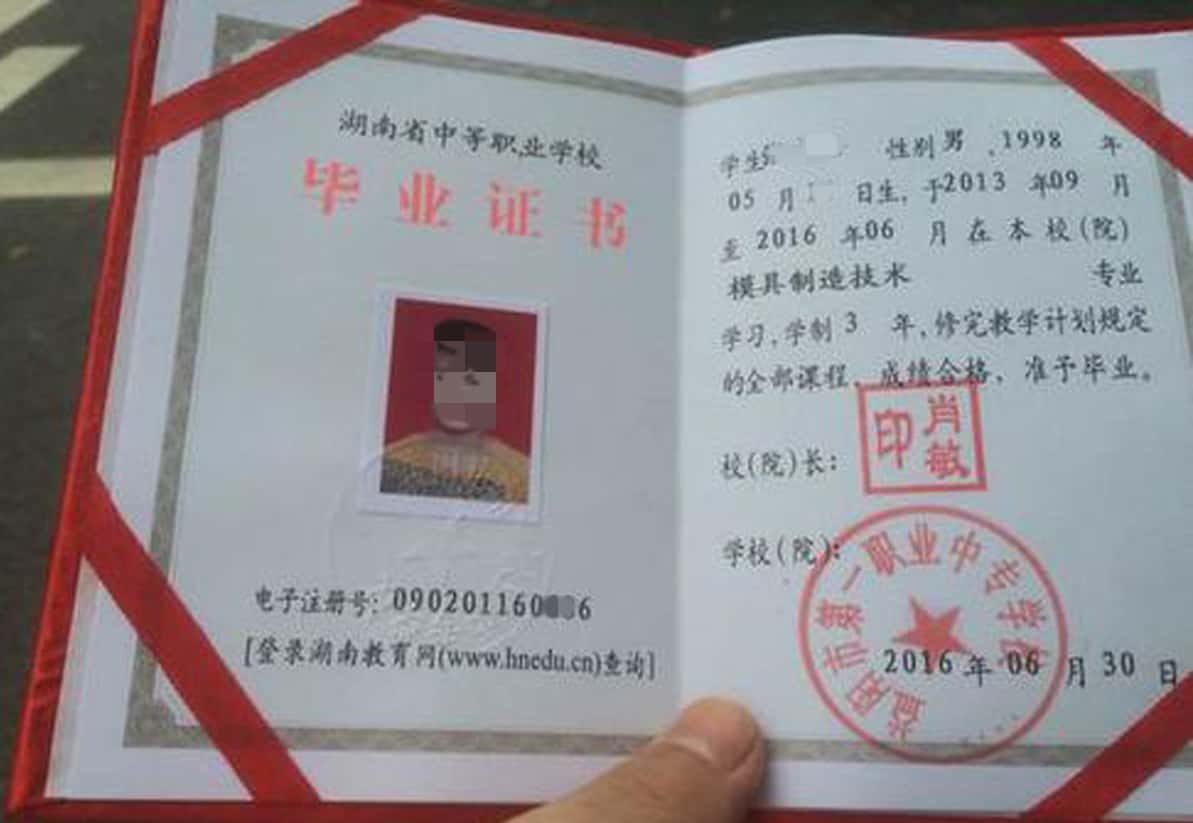 湖南省中等职业学校
毕业证书
电子注册号: 090201160 6
[登录湖南教育网(www.hnedu.cn)查询]
学生 性别 男 ,1998 年
05 月 日生, 于2013 年09 月
至 2016 年06 月 在 本 校(院)
模具制造技术 专业
学习,学制 3 年,修完教学计划规定
的全部课程、成绩合格, 准予毕业。
校(院)长:
肖敏印
学校(院):
益阳市第一职业中专学校
2016 年 06 月 30 日